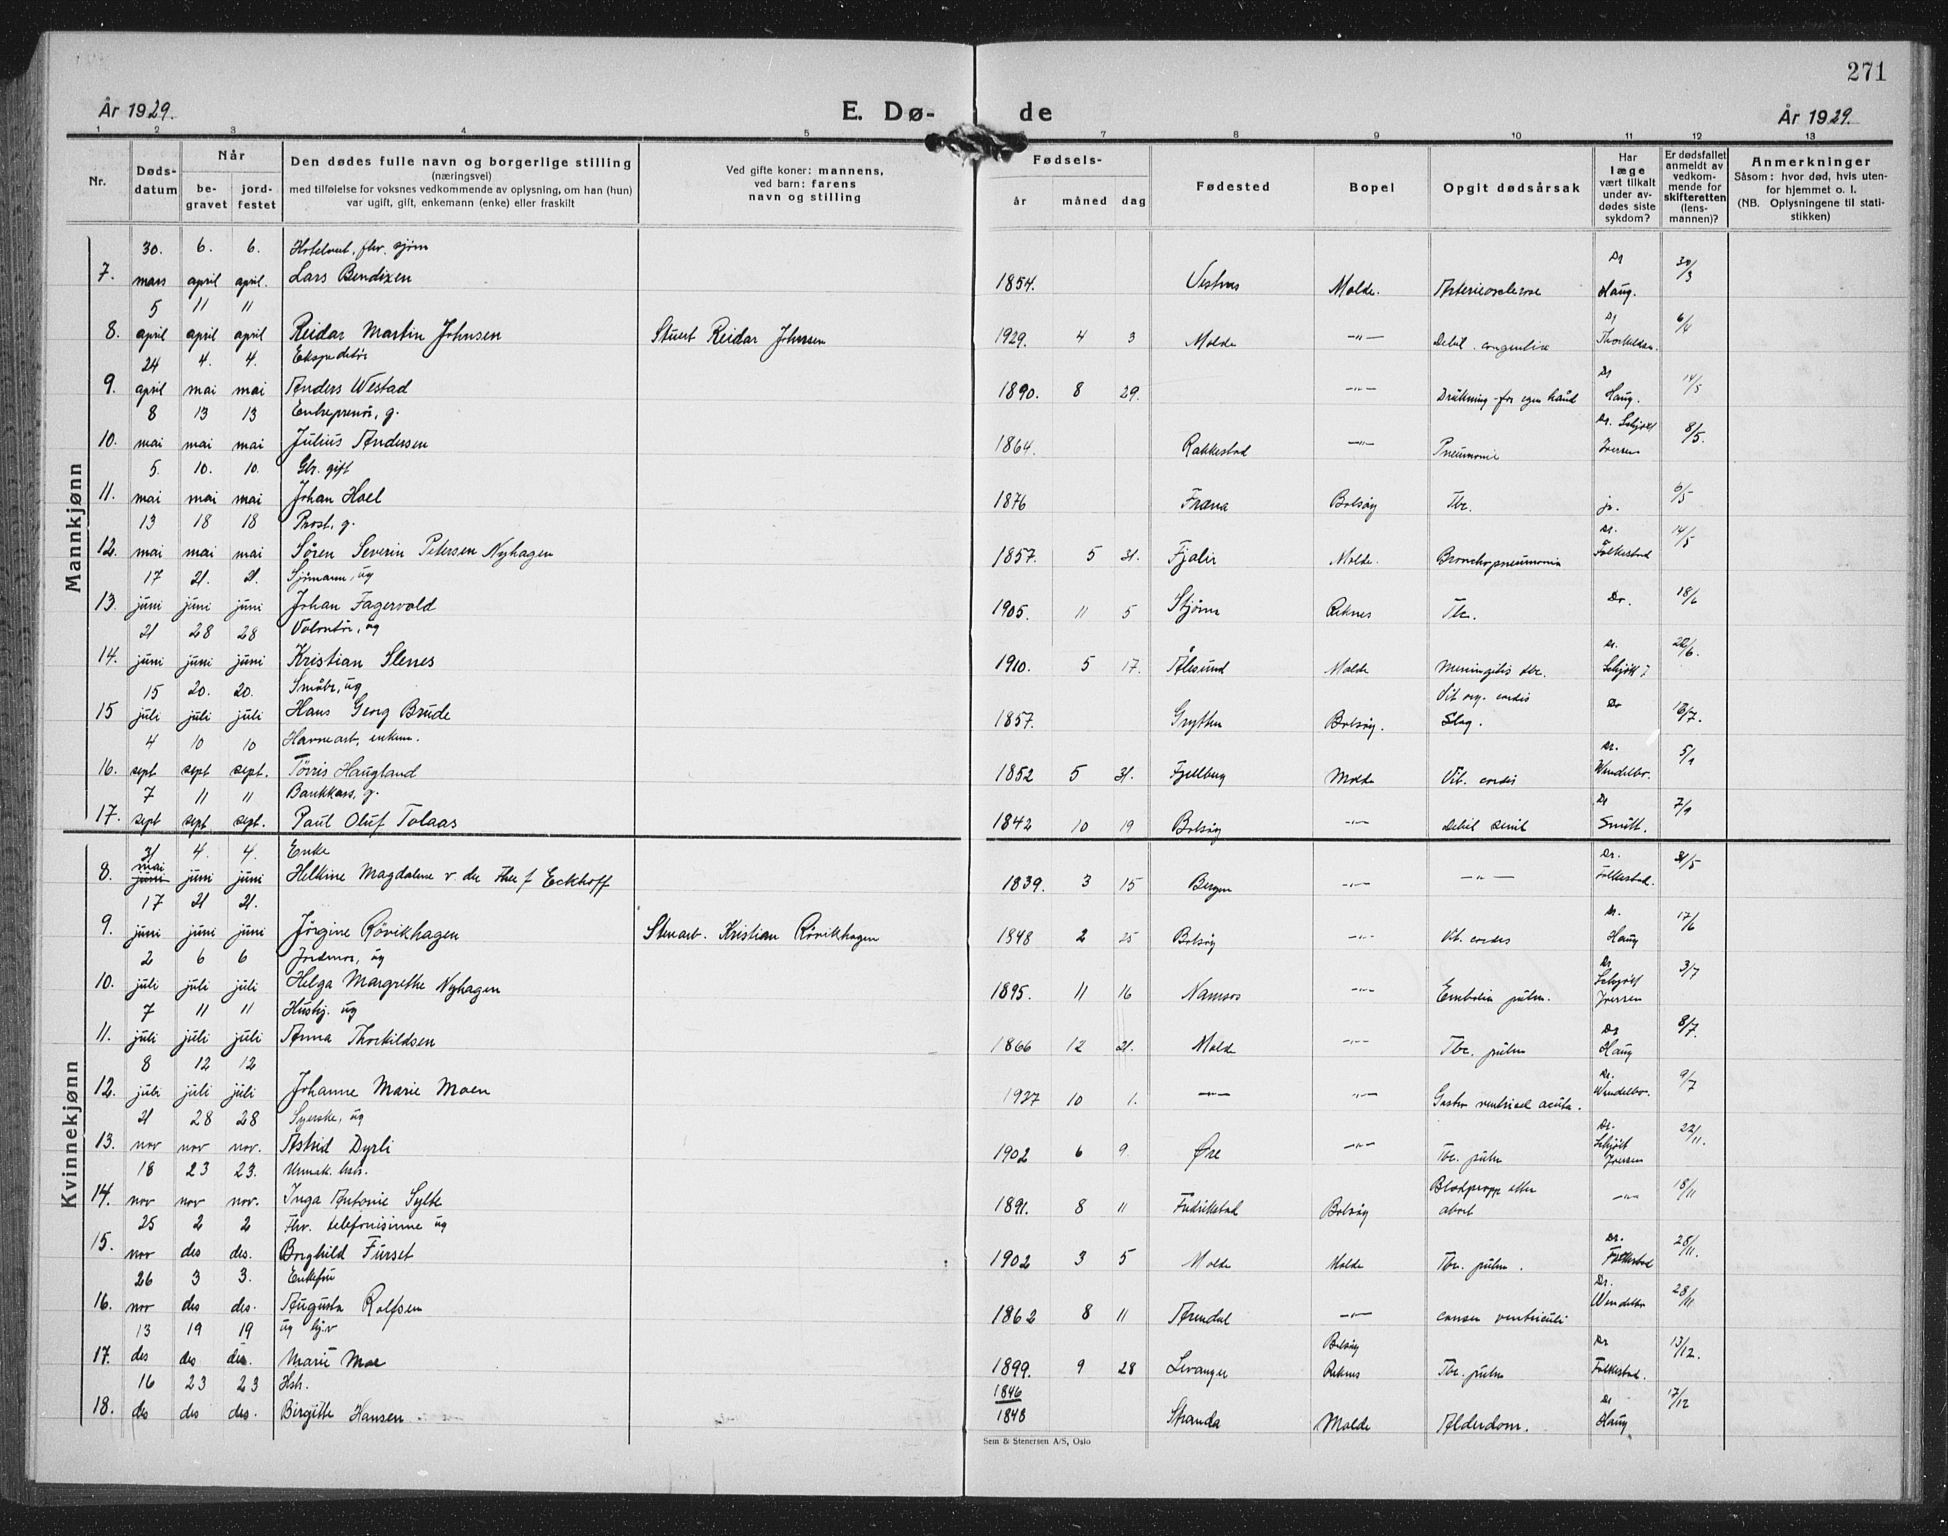 271
År 1929. E. Dø- de År 1929.
1 2 3 4 5 6 7 8 9 10 11 12 13
Nr. Døds-datum Når be-gravet jord-festet Den dødes fulle navn og borgerlige stilling (næringsvei) med tilføielse for voksnes vedkommende av oplysning, om han (hun) var ugift, gift, enkemann (enke) eller fraskilt Ved gifte koner: mannens, ved barn: farens navn og stilling Fødsels- år måned dag Fødested Bopel Opgit dødsårsak Har læge vært tilkalt under av-dødes siste sykdom? Er dødsfallet anmeldt av vedkom-mende for skifteretten (lens-mannen)? Anmerkninger Såsom: hvor død, hvis uten-for hjemmet o. l. (NB. Oplysningene til stati-stikken)
Mannkjønn
30. 6. 6. Hotelvert, fhv. sjøm Dr 30/3
7. mars april april. Lars Bendixen 1854. Vestnes Molde. Arteriosclerose Haug.
5 11 11 Dr 6/4
8. april april april Reidar Martin Johnsen Stuert Reidar Johnsen 1929. 4 3 Molde -"- Debil. congenitia Thorkildsen.
24 4. 4. Ekspeditør Dr 14/5
9. april mai mai Anders Westad 1890. 8 29. -"- Drukning for egen hånd Haug.
8 13 13 Entreprenør, g. Dr. Schjøtt 8/5.
10. mai mai mai Julius Andersen 1864. Rakkestad -"- Pneumonie Iversen
5. 10. 10. Gbr. gift 6/5
11. mai mai mai Johan Hoel 1876 Fræna Bolsøy Tbc. ja.
13 18 18 Prost, g. Dr. 14/5
12. mai mai mai Søren Severin Petersen Nyhagen 1857. 5 31. Fjaler Molde. Bronchopneumonia Folkestad
17 21. 21. Sjømann, ug Dr. 18/6
13. juni juni juni Johan Fagervold 1905. 11 5 Stjørn Reknes Tbc.
21 28 28 Volontør, ug Dr. 22/6.
14. juni juni juni Kristian Slenes 1910. 5 17. Ålesund Molde Meningitis tbc. Schjøtt I
15 20. 20. Småbr, ug Vit org. cordis Dr 18/7.
15 juli juli juli Hans Georg Brude 1857. Grytten Bolsøy. Slag.
4 10 10 Havnearb, enkem. Dr. 5/9
16. sept sept sept. Tørris Haugland 1852 5 31. Fjellberg Molde Vit. cordis Wendelbo.
7 11 11 Bankkass, g. Dr 7/9
17. sept sept sept. Paul Oluf Tolaas 1842 10 19 Bolsøy -"- Debil senil Smitt.
Kvinnekjønn
31 4. 4. Enke Dr. 31/5
8. mai juni juni juni Helkine Magdalene v. der Fhee f Eckhoff 1839. 3 15 Bergen -"- -"- Folkestad.
17 21 21. Dr. 17/6
9. juni juni juni Jørgine Røvikhagen Stenarb. Kristian Røvikhagen 1848 2 25 Bolsøy -"- Vit. cordis Haug
2 6 6 Jordmor, ug Dr 3/7
10. juli juli juli Helga Margrethe Nyhagen 1895. 11 16 Namsos -"- Embolia pulm. Schjøtt Iversen
7 11 11 Hushj. ug Dr 8/7.
11. juli juli juli Anna Thorkildsen 1866 12 21. Molde -"- Tbc. pulm Haug
8 12 12 Dr. 9/7
12. juli juli juli Johanne Marie Moen 1927 10 1. -"- -"- Gastro ventricul acuta. Wendelbo.
21 28 28 Syerske, ug Dr. 22/11.
13. nov nov nov. Astrid Dyrli 1902 6 9. Øre -"- Tbc. pulm Schjøtt Iversen
18 23 23. Urmak. hstr. Blodpropp efter 18/11
14. nov nov nov. Inga Antonie Sylte 1891. 8 11 Fredrikstad Bolsøy abort -"-
25 2 2 Fhv. telefonisinne ug Dr. 28/11.
15. nov des des. Borghild Furset 1902 3 5 Molde Molde Tbc. pulm. Folkestad
26 3 3. Enkefru Dr. 28/11
16. nov des des. Augusta Rolfsen 1862 8 11 Arendal -"- cancer ventriculi Wendelbo
13 19 19 ug hj.v Bolsøy Dr 13/12.
17. des des des. Marie Moe 1899. 9 28 Levanger Reknes Tbc. pulm Folkestad.
16 23 23 Hstr. 1846 Dr 17/12
18. des des des. Birgitte Hansen 1848 Stranda Molde Alderdom. Haug
Sem & Stenersen A/S, Oslo